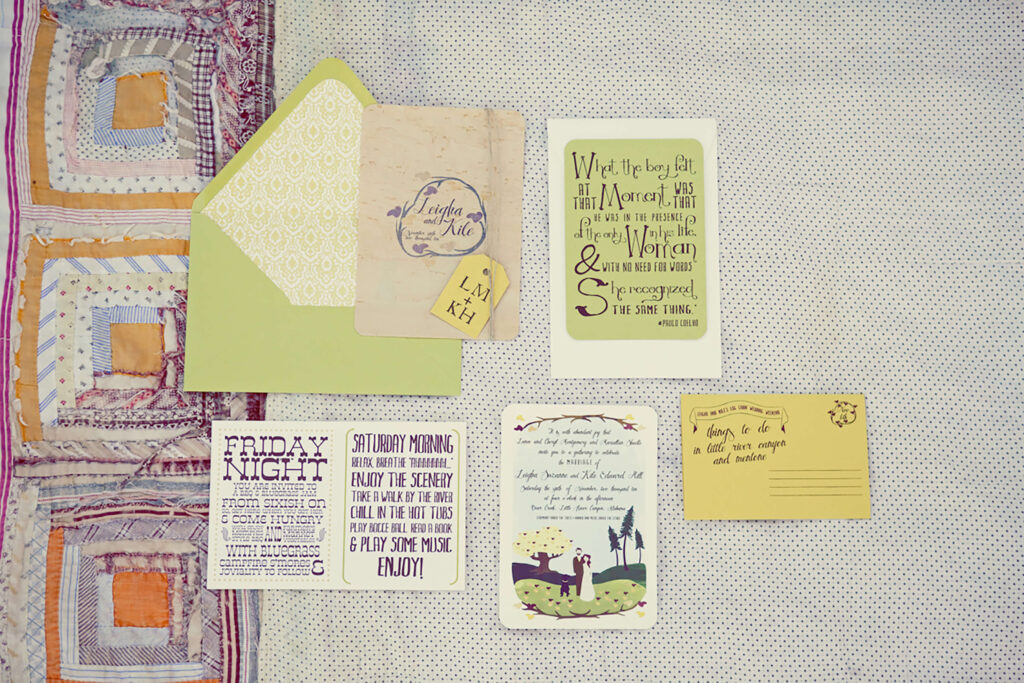 Leigha
and
Kile
November sixth
two thousand ten
LM
+
KH
What the boy felt
AT
THAT
Moment WAS
THAT
HE WAS IN THE PRESENCE
of the only Woman in his life,
& WITH NO NEED FOR WORDS
She recognized
THE SAME THING."
*PAULO COELHO
FRIDAY
NIGHT
FROM SIXISH ON
& COME HUNGRY
AND
WITH BLUEGRASS
CAMPFIRE S'MORES &
JOVIALITY TO FOLLOW
SATURDAY MORNING
RELAX, BREATHE "AHHHHHHH..."
ENJOY THE SCENERY
TAKE A WALK BY THE RIVER
CHILL IN THE HOT TUBS
PLAY BOCCE BALL READ A BOOK
& PLAY SOME MUSIC
ENJOY!
It is with abundant joy that
invite you to a gathering to celebrate
the MARRIAGE of
Leigha Suzanne and Kile Edward Hill
November, two thousand ten
at four o'clock in the afternoon
LEIGHA AND KILE'S LOG CABIN WEDDING WEEKEND
things to do
in little river canyon
and mentone